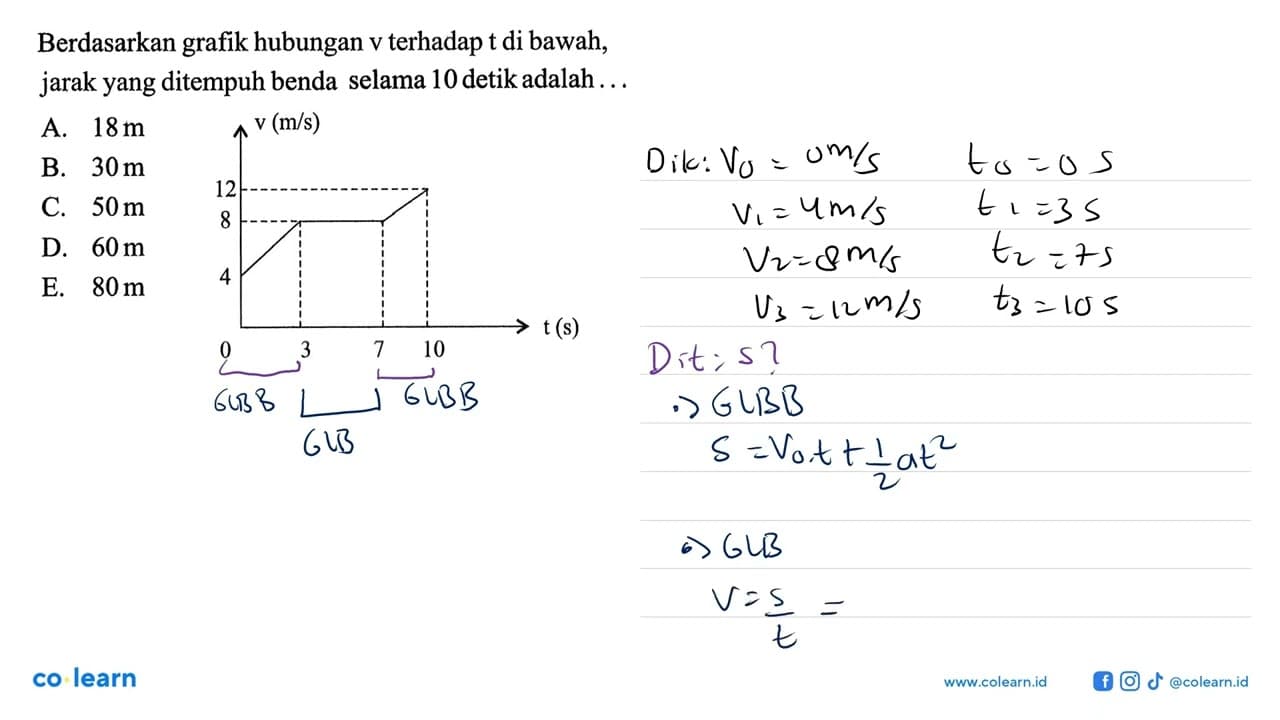 Berdasarkan grafik hubungan v terhadap t di bawah,
jarak yang ditempuh benda selama 10 detik adalah . . .
A. 18 m
B. 30 m
C. 50 m
D. 60 m
E. 80 m
v (m/s)
12
8
4
t (s)
0 3 7 10
GLBB
GLB
GLBB
Dik: V₀ = 0 m/s t₀ = 0 s
V₁ = 4 m/s t₁ = 3 s
V₂ = 8 m/s t₂ = 7 s
V₃ = 12 m/s t₃ = 10 s
Dit: s?
•) GLBB
S = V₀.t + 1/2 at²
•) GLB
V = s/t =
co learn
www.colearn.id
@colearn.id